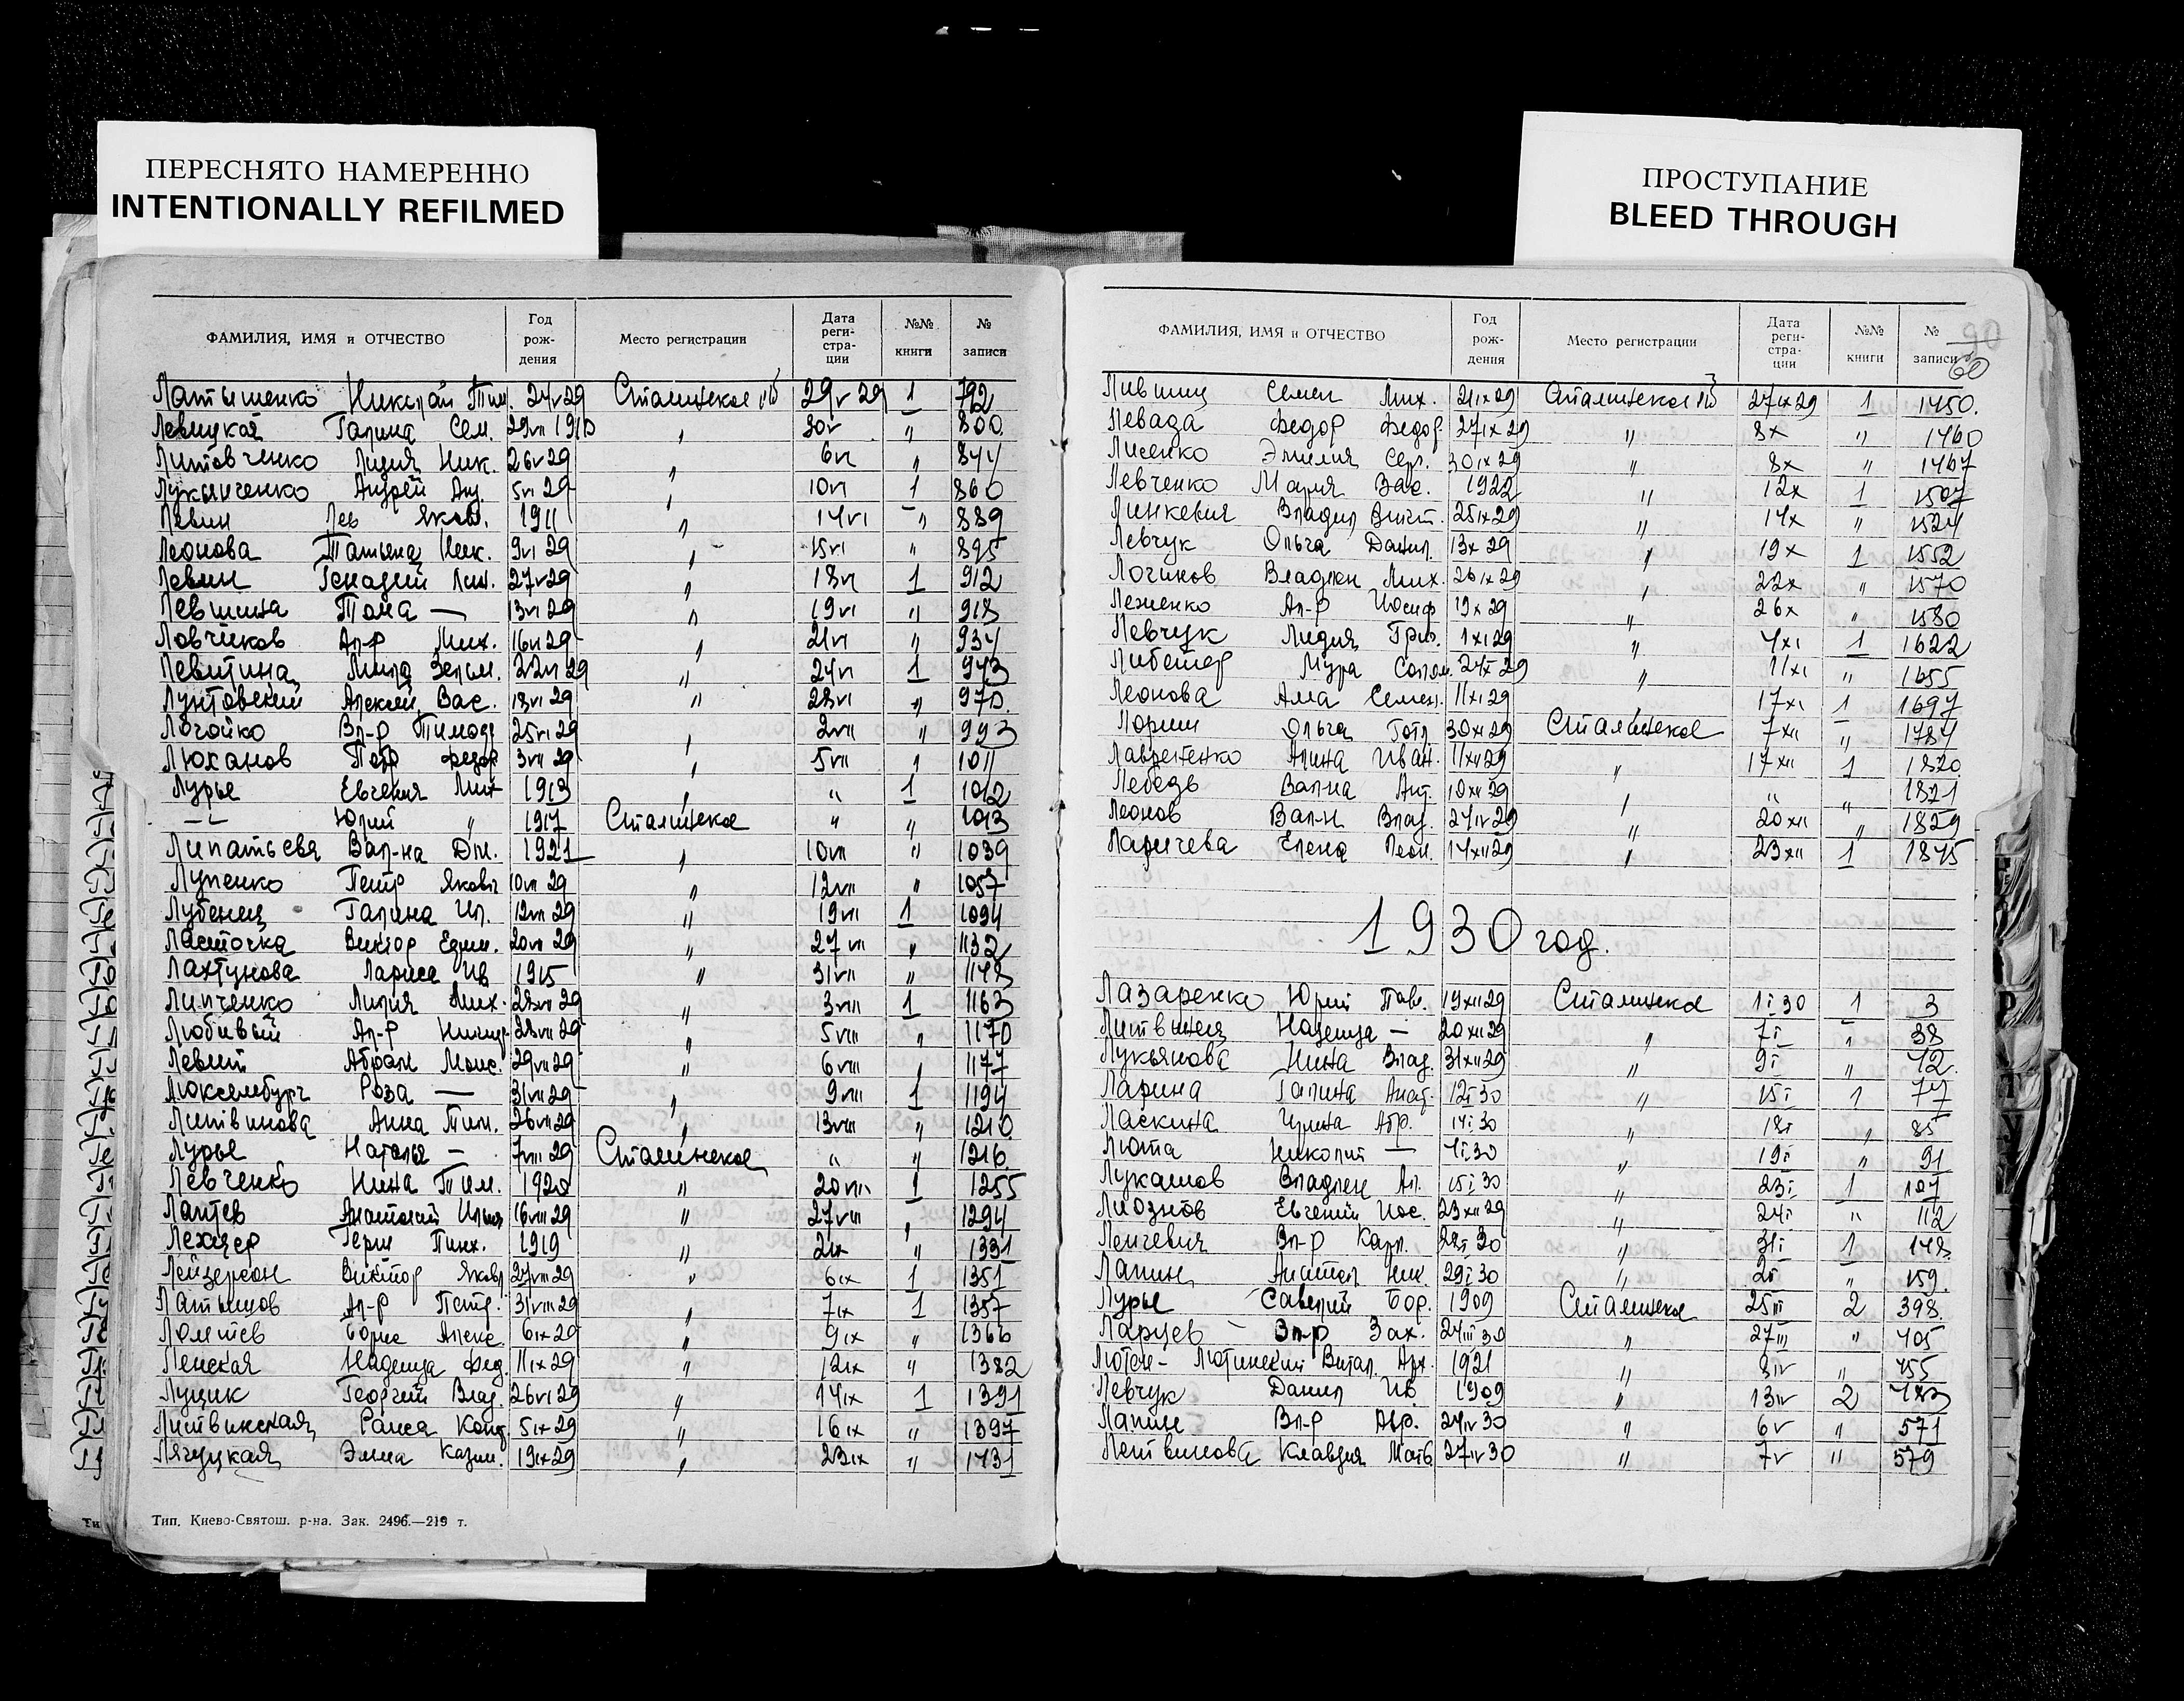 ПЕРЕСНЯТО НАМЕРЕННО
INTENTIONALLY REFILMED
ПРОСТУПАНИЕ
BLEED THROUGH
ФАМИЛИЯ, ИМЯ и ОТЧЕСТВО Год рождения Место регистрации Дата регистрации №№ книги № записи
Латышенко Николай Тим. 24 V 29 Сталинское 29 V 29 1 792
Левицкая Галина Сем. 30 V " 800
Литовченко Лидия Ник. 26 V 29 " 6 VI " 844
Лукьянченко Андрей Анд. 5 VI 29 " 10 VI 1 860
Левин Лев Яков. 1911 " 14 VI " 889
Леонова Татьяна Ник. 9 VI 29 " 15 VI " 895
Левин Генадий 27 V 29 " 18 VI 1 912
Левшина Тома — 13 VI 29 " 19 VI " 918
Ловчиков Ал-р Мих. 16 VI 29 " 21 VI " 934
Левитина Зельм. 22 VI 29 " 24 VI 1 943
Лунтовский Алексей Вас. 18 VI 29 " 28 VI " 970
Логойко Вл-р Тимоф 25 VI 29 " 2 VII " 993
Люханов Петр Федор 3 VII 29 " 5 VII " 1011
Лурье Евгения Мих 1913 " " 1 1012
—"— Юрий " 1917 Сталинское " " 1013
Липатьева Вал-на Дм. 1921 " 10 VII " 1039
Лупенко Петр Яковл 10 VII 29 " 12 VII " 1057
Лубенец Галина Ил. 12 VII 29 " 19 VII 1 1094
Ласточка Виктор Ефим. 20 VII 29 " 27 VII " 1132
Лахтунова Лариса Ив 1915 " 31 VII " 1148
Липченко Лидия Мих. 28 VII 29 " 3 VIII 1 1163
Любивый Ал-р 28 VII 29 " 5 VIII " 1170
Левит Абрам Моис. 29 VII 29 " 6 VIII " 1177
Люксембург Роза — 31 VII 29 " 9 VIII 1 1194
Литвинова Анна Тим. 26 VII 29 " 13 VIII " 1210
Лурье Наталья — 7 VIII 29 Сталинское " " 1216
Левченко Нина Тим. 1920 " 20 VIII 1 1255
Лаптев Анатолий Ильич 16 VIII 29 " 27 VIII " 1294
Лехцер Герш Пинх. 1919 " 2 IX " 1331
Лейзерсон Виктор Яковл 27 VIII 29 " 6 IX 1 1351
Латышов Ал-р Петр. 31 VIII 29 " 7 IX 1 1357
Борис Алекс. 6 IX 29 " 9 IX " 1366
Ленская Надежда Фед. 11 IX 29 " 12 IX " 1382
Луцик Георгий Влад. 26 VI 29 " 14 IX 1 1391
Литвинская Раиса Конд. 5 IX 29 " 16 IX " 1397
Лячуцкая Эмма Казим. 19 IX 29 " 23 IX " 1431
Тип. Киево-Святош. р-на. Зак. 2496.—219 т.
ФАМИЛИЯ, ИМЯ и ОТЧЕСТВО Год рождения Место регистрации Дата регистрации №№ книги № записи
90
60
Лившиц Семен Мих. 21 IX 29 Сталинское 27 IX 29 1 1450.
Левада Федор Федор 27 IX 29 " 8 X " 1460
Лисенко Эмилия Серг. 30 IX 29 " 8 X " 1467
Левченко Мария Вас. 1922 " 12 X 1 1507
Линкевич Владил Викт. 25 IX 29 " 14 X " 1524
Левчук Ольга Данил. 13 X 29 " 19 X 1 1552
Логинов Владлен Мих. 26 IX 29 " 22 X " 1570
Леженко Ал-р Иосиф 19 X 29 " 26 X " 1580
Левчук Лидия Григ. 1 XI 29 " 4 XI 1 1622
Мура Солом. 24 X 29 " 11 XI " 1655
Леонова Алла Семен. 11 XI 29 " 17 XI 1 1697
Лорин Ольга Готл. 30 XI 29 Сталинское 7 XII " 1784
Лавренченко Алина Иван. 11 XII 29 " 17 XII 1 1820
Лебедь Вал-на Ант. 10 XII 29 " " " 1821
Леонов Вал-н Влад. 24 IV 29 " 20 XII " 1829
Ларичева Елена Леон. 14 XII 29 " 23 XII 1 1845
1930 год.
Лазаренко Юрий Павл. 19 XII 29 Сталинское 1 I 30 1 3
Литвинец Надежда — 20 XII 29 " 7 I " 38
Лукьянова Нина Влад. 31 XII 29 " 9 I " 42.
Ларина Галина Анат. 12 I 30 " 15 I 1 77
Ласкина Ирина Абр. 14 I 30 " 18 I " 85
Люта Николай — 4 I 30 " 19 I " 91
Лукашов Владлен Ал. 15 I 30 " 23 I 1 107
Лиознов Евгений Иос. 23 XII 29 " 24 I " 112
Ленгевич Вл-р Карл. 28 I 30 " 31 I 1 148
Лапин Анатол Ник. 29 I 30 " 2 II " 159
Лурье Савелий Бор. 1909 Сталинское 25 III 2 398
Ларцев Вл-р Зах. 24 III 30 " 27 III " 405
Лютен-Лютинский Витал. Арк. 1921 " 8 IV " 455
Левчук Данил Ив. 1909 " 13 IV 2 483
Лапин Вл-р Авр. 24 IV 30 " 6 V " 571
Литвинова Клавдия Матв 27 IV 30 " 7 V " 579